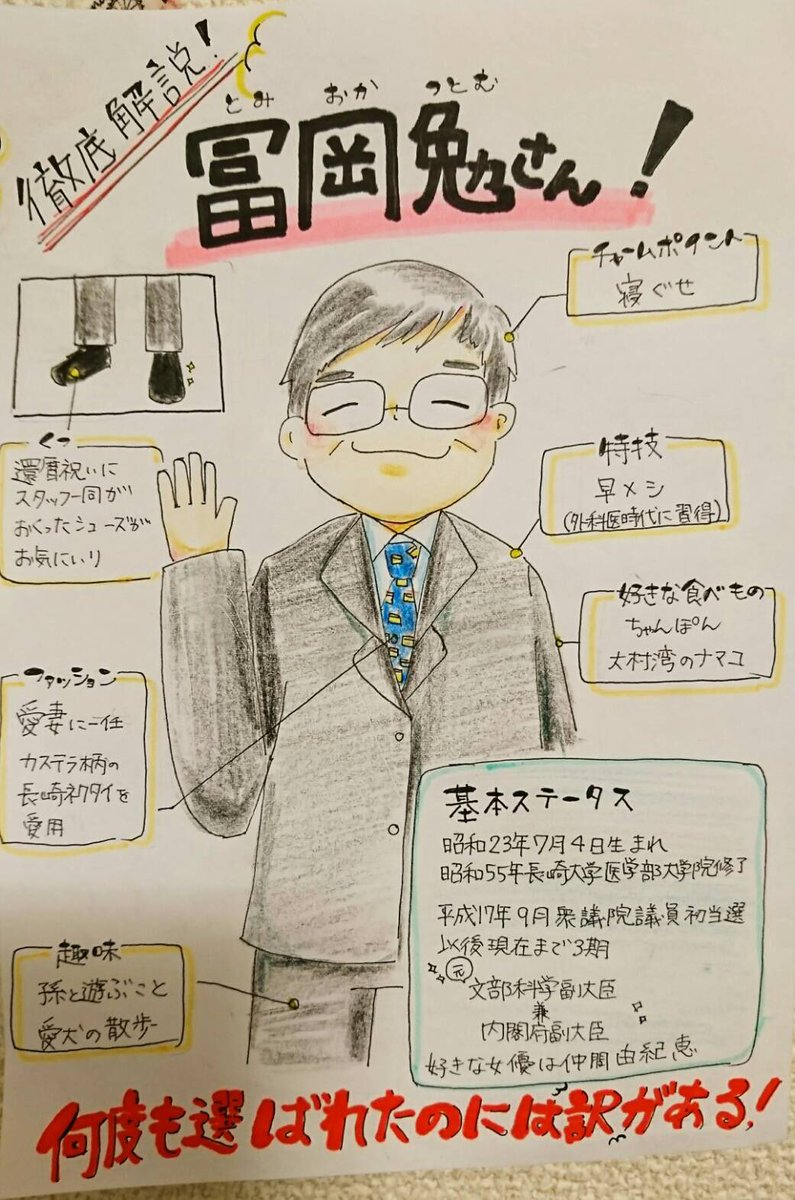 徹底解説!
とみ おか つとむ
冨岡勉さん!
チャームポイント
寝ぐせ
くつ
還暦祝いに
スタッフ一同が
おくったシューズが
お気にいり
特技
早メシ
(外科医時代に習得)
好きな食べもの
ちゃんぽん
大村湾のナマコ
ファッション
愛妻に一任
カステラ柄の
長崎ネクタイを
愛用
基本ステータス
昭和23年7月4日生まれ
昭和55年長崎大学医学部大学院修了
平成17年9月衆議院議員初当選
以後現在まで3期
元
文部科学副大臣
兼
内閣府副大臣
好きな女優は仲間由紀恵
趣味
孫と遊ぶこと
愛犬の散歩
何度も選ばれたのには訳がある!